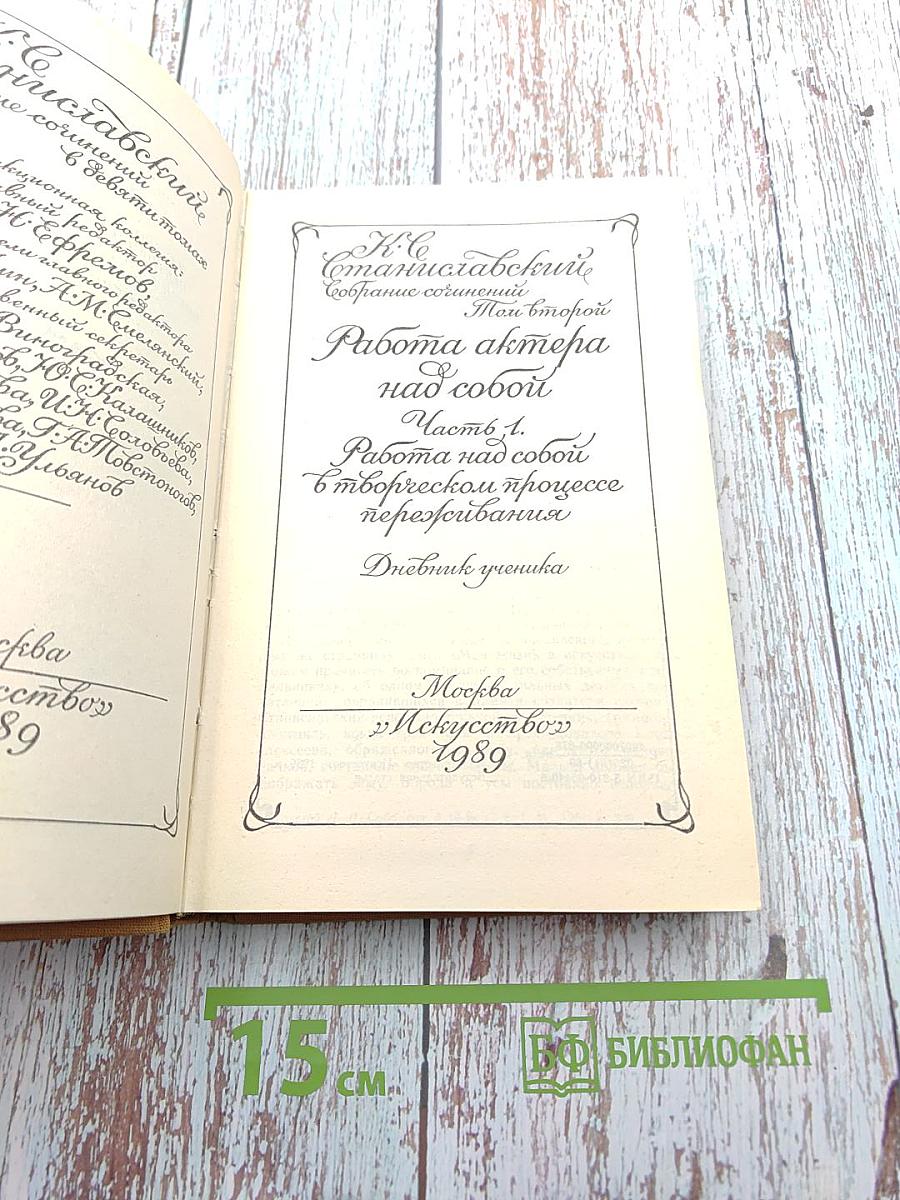 К. С
ниславский
ие сочинений
в девяти томах
кционная коллегия:
вный редактор
Н. Ефремов,
ели главного редактора
ин, А. М. Смелянский,
венный секретарь
Виноградская,
в, Ю. С. Калашников,
ва, И. Н. Соловьева,
ва, Г. А. Товстоногов,
Ульянов
сква
сство»
89
К. С
Станиславский
Собрание сочинений
Том второй
Работа актера
над собой
Часть 1.
Работа над собой
в творческом процессе
переживания
Дневник ученика
Москва
«Искусство»
1989
15 см
БФ БИБЛИОФАН